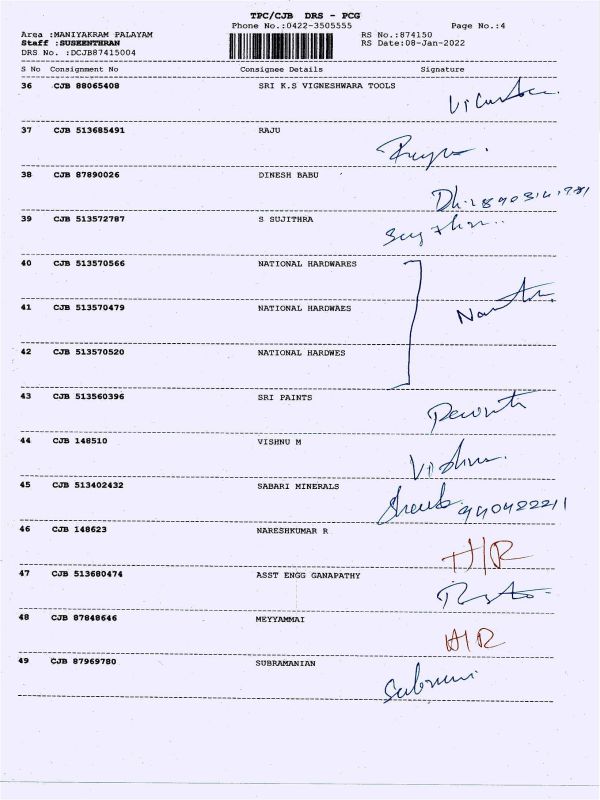 TPC/CJB DRS - PCG
Phone No.:0422-3505555 Page No.:4
Area :MANIYAKRAM PALAYAM RS No.:874150
Staff :SUSEENTHRAN RS Date:08-Jan-2022
DRS No. :DCJB87415004
S No Consignment No Consignee Details Signature
36 CJB 88065408 SRI K.S VIGNESHWARA TOOLS
37 CJB 513685491 RAJU
38 CJB 87890026 DINESH BABU
39 CJB 513572787 S SUJITHRA
40 CJB 513570566 NATIONAL HARDWARES
41 CJB 513570479 NATIONAL HARDWAES
42 CJB 513570520 NATIONAL HARDWES
43 CJB 513560396 SRI PAINTS
44 CJB 148510 VISHNU M
Vishnu
45 CJB 513402432 SABARI MINERALS
46 CJB 148623 NARESHKUMAR R
47 CJB 513680474 ASST ENGG GANAPATHY
48 CJB 87848646 MEYYAMMAI
49 CJB 87969780 SUBRAMANIAN